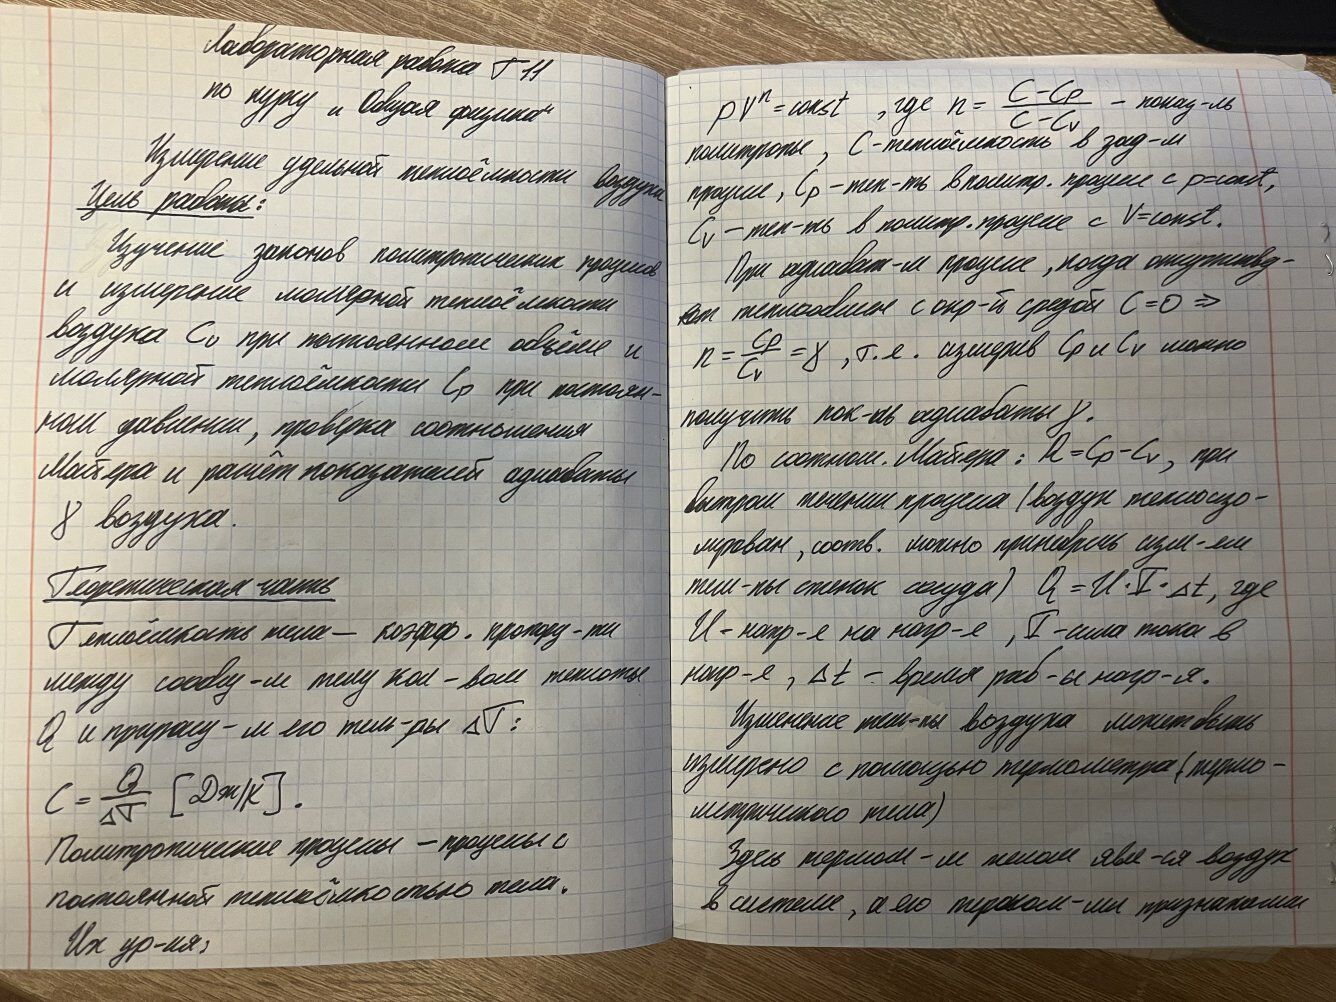 Лабораторная работа Т11
по курсу „Общая физика"
Измерение удельной теплоёмкости воздуха
Цель работы:
Изучение законов политропических процессов
и измерение молярной теплоёмкости
воздуха Cv при постоянном объёме и
молярной теплоёмкости Cp при постоян-
ном давлении, проверка соотношения
Майера и расчёт показателей адиабаты
γ воздуха.
Теоретическая часть
Теплоёмкость тела – коэфф. пропорц-ти
между сообщ-м телу кол-вом теплоты
Q и приращ-м его тем-ры ΔT:
C = Q/ΔT [Дж/К].
Политропические процессы – процессы с
постоянной теплоёмкостью тела.
Их ур-ия:
pVⁿ = const, где n = (C-Cp)/(C-Cv) – показ-ль
политропы, C – теплоёмкость в зад-м
процессе, Cp – теп-ть в политр. процессе с p=const,
Cv – теп-ть в политр. процессе с V=const.
При адиабат-м процессе, когда отсутству-
ет теплообмен с окр-й средой C=0 ⇒
n = Cp/Cv = γ, т.е. измерив Cp и Cv можно
получить пок-ль адиабаты γ.
По соотнош. Майера: R = Cp - Cv, при
быстром течении процесса (воздух теплоизо-
лирован, соотв. можно пренебречь изм-ем
тем-ры стенок сосуда) Q = U·I·Δt, где
U – напр-е на нагр-е, I – сила тока в
нагр-е, Δt – время раб-ы нагр-я.
Изменение тем-ры воздуха может быть
измерено с помощью термометра (термо-
метрического тела)
Здесь термом-м телом явл-ся воздух
в системе, а его термом-ми признаками